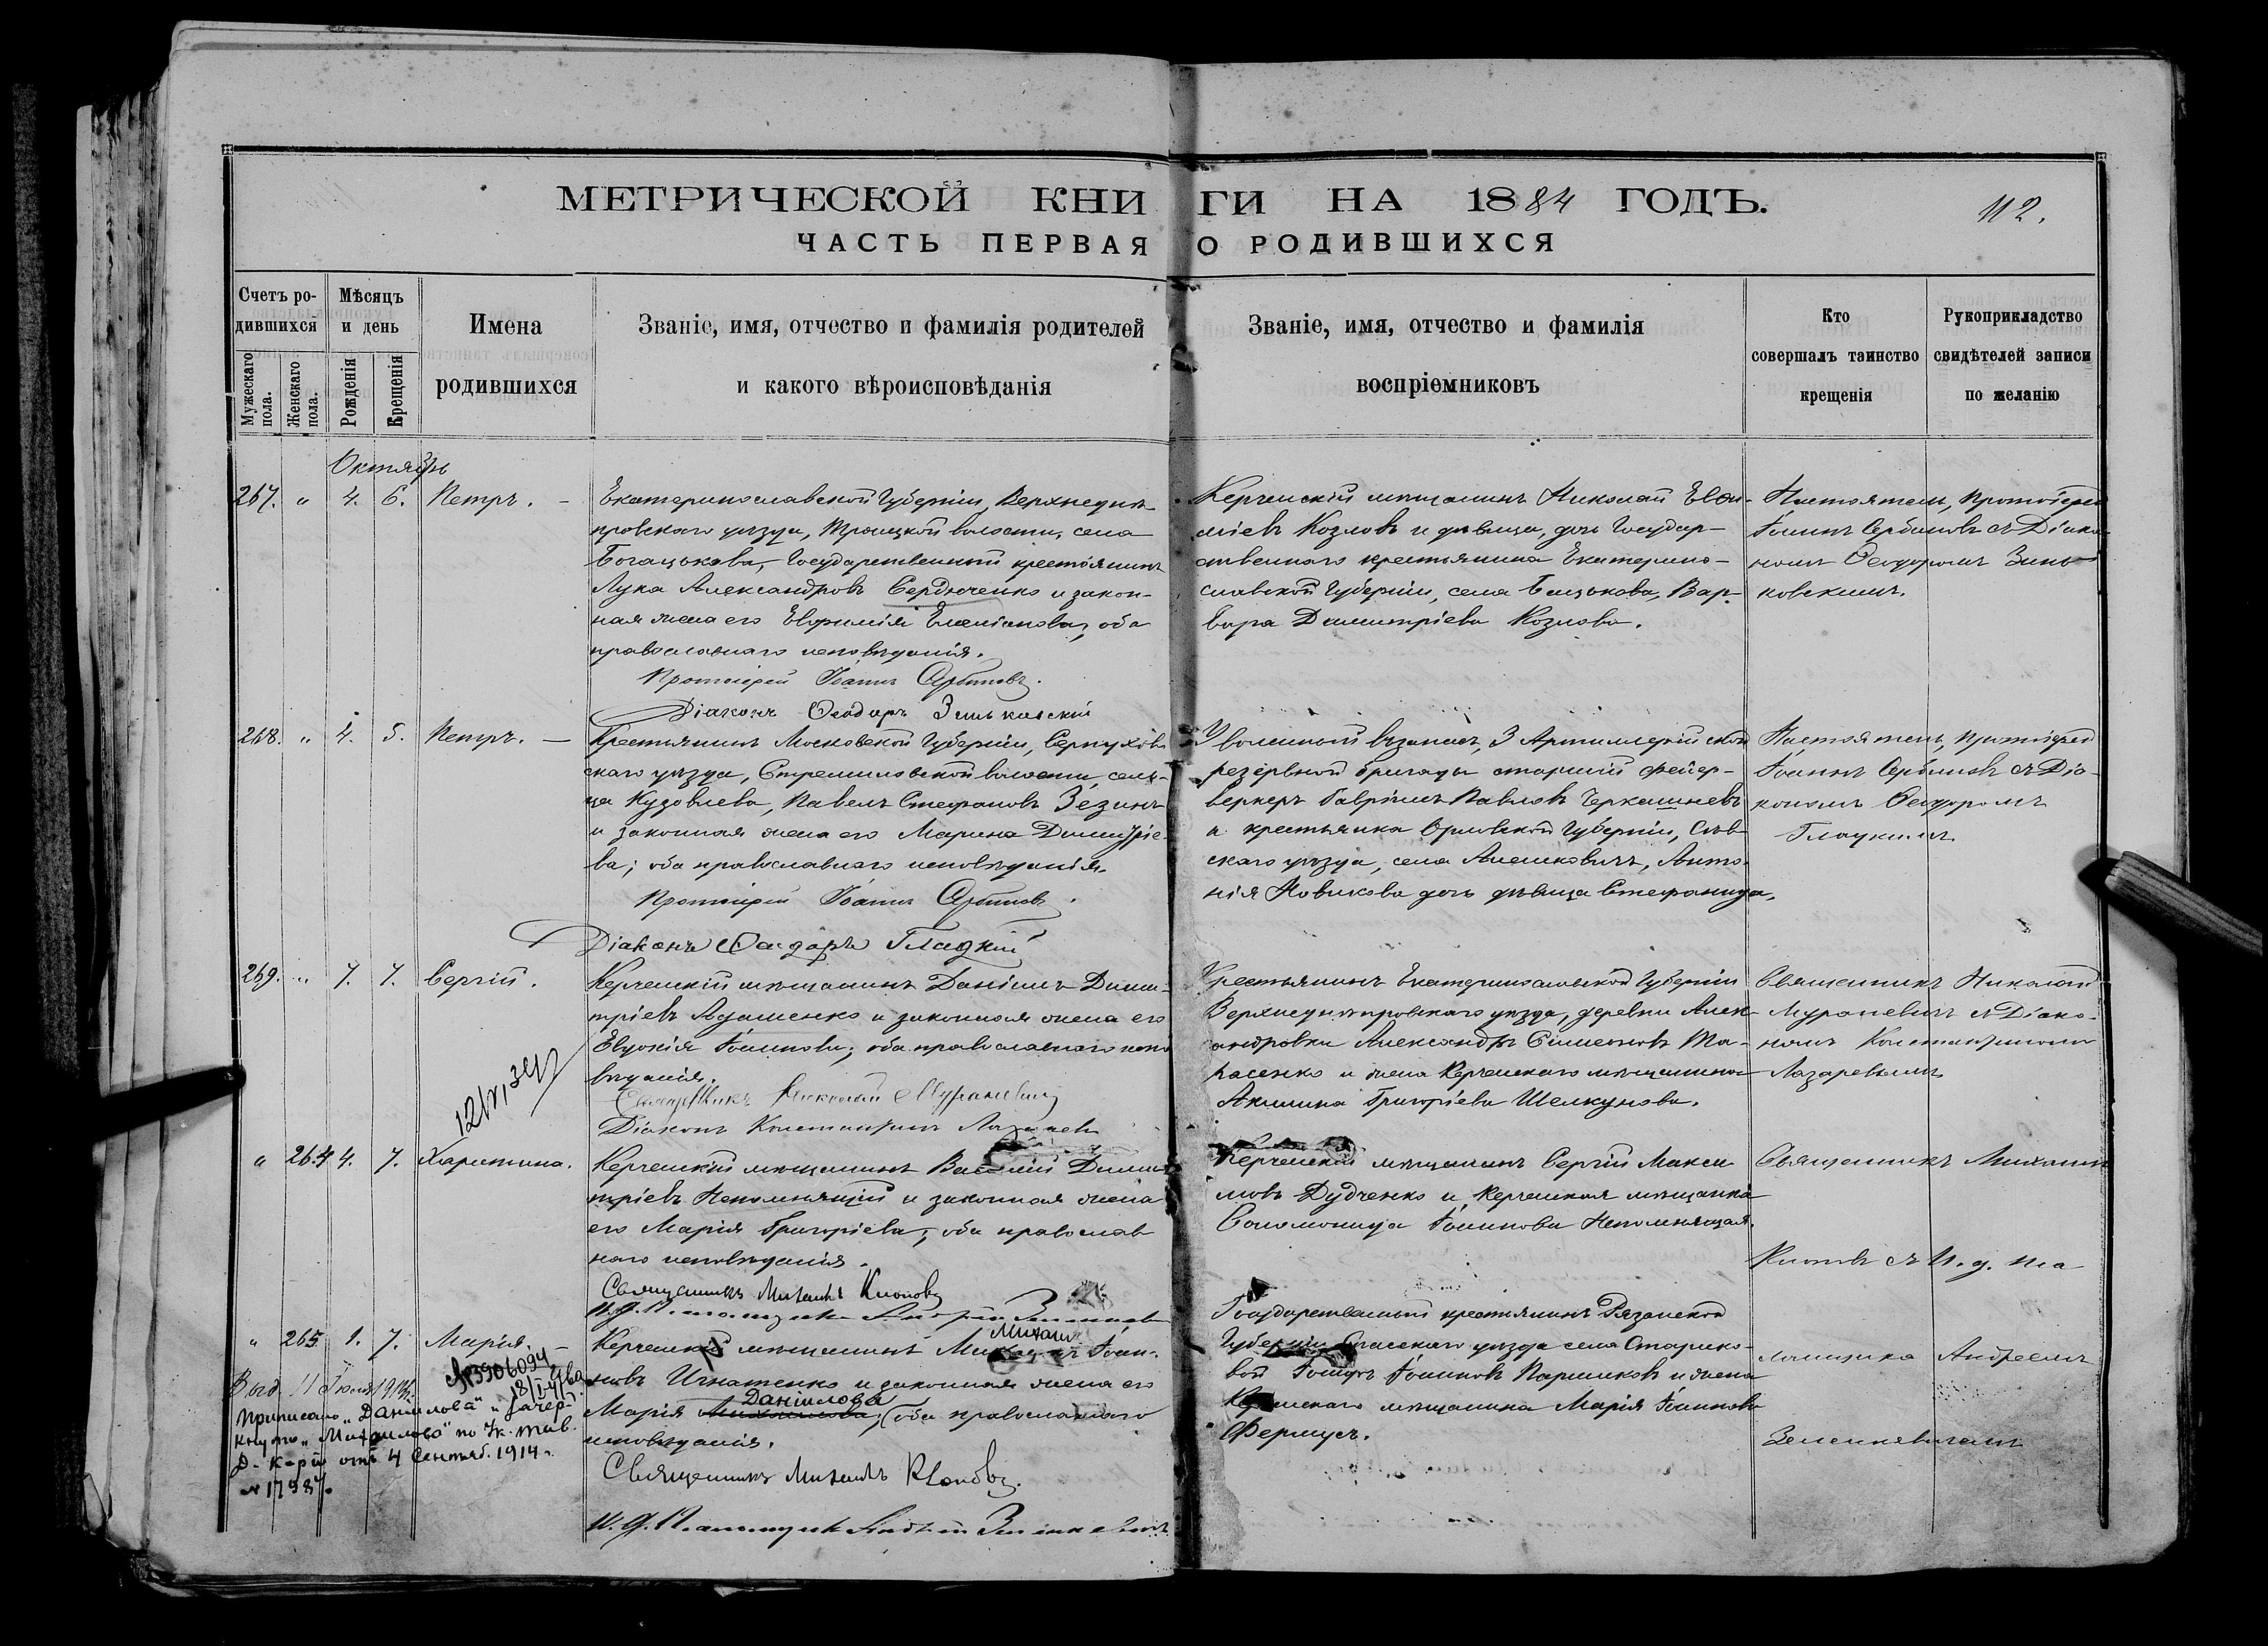 МЕТРИЧЕСКОЙ КНИГИ НА 1884 ГОДЪ.
112.
ЧАСТЬ ПЕРВАЯ О РОДИВШИХСЯ
Счетъ родившихся
Мужескаго пола.
Женскаго пола.
Мѣсяцъ и день
Рожденія
Крещенія
Имена
родившихся
Званіе, имя, отчество и фамилія родителей
и какого вѣроисповѣданія
Званіе, имя, отчество и фамилія
воспріемниковъ
Кто
совершалъ таинство
крещенія
Рукоприкладство
свидѣтелей записи
по желанію
Октябрь
267. " 4. 6. Петръ. –
Екатеринославской Губерніи, Верхнеднѣ-
провскаго уѣзда, Троицкой волости, села
Государственный крестьянинъ
Лука Александровъ Сердюченко и закон-
ная жена его Евфимія оба
православнаго исповѣданія.
Протоіерей Іоаннъ Сербиновъ.
Діаконъ Ѳеодоръ Зиньковскій
Керченскій мѣщанинъ Николай Евѳи-
міевъ Козловъ и дѣвица, дочь Государ-
ственнаго крестьянина Екатерино-
славской Губерніи, села Вар-
вара Димитріева Козлова.
Настоятель, Протоіерей
Іоаннъ Сербиновъ съ Діако-
номъ Ѳеодоромъ Зинь-
ковскимъ.
268. " 4. 5. Петръ. –
Крестьянинъ Московской Губерніи, Серпухов-
скаго уѣзда, Стремиловской волости, сель-
ца Кудовлева, Павелъ Стефановъ Зезинъ
и законная жена его Марина Димитріе-
ва; оба православнаго исповѣданія.
Протоіерей Іоаннъ Сербиновъ.
Діаконъ Ѳеодоръ Гладкій
Уволенный въ запасъ, 3 Артиллерійской
резервной бригады старшій фейер-
веркеръ Гавріилъ Павловъ
и крестьянка Орловской Губерніи, Сѣв-
скаго уѣзда, села Алешковичъ, Анто-
нія Новикова дочь дѣвица Стефанида.
Настоятель, протоіерей
Іоаннъ Сербиновъ съ Діа-
кономъ Ѳеодоромъ
Гладкимъ
269. " 7. 7. Сергій.
Керченскій мѣщанинъ Даніилъ Дими-
тріевъ Адаменко и законная жена его
Евдокія Іоаннова; оба православнаго испо-
вѣданія.
Священникъ Николай Мураневичъ
Діаконъ Константинъ Лазаревъ
Крестьянинъ Екатеринославской Губерніи
Верхнеднѣпровскаго уѣзда, деревни Алек-
андровки Александръ Симеоновъ Та-
расенко и жена Керченскаго мѣщанина
Акилина Григоріева Шелкунова.
Священникъ Николай
Мураневичъ съ Діако-
номъ Константиномъ
Лазаревымъ
" 264 4. 7. Харитина.
Керченскій мѣщанинъ Василій Дими-
тріевъ Непомнящій и законная жена
его Марія Григоріева; оба православ-
наго исповѣданія.
Священникъ Михаилъ Клоповъ
Керченскій мѣщанинъ Сергій Макси-
мовъ Дудченко и Керченская мѣщанка
Соломонида Іоаннова Непомнящая.
Священникъ Михаилъ
Клоповъ съ И. д. Пса-
ломщика Андреемъ
Зеленкевичемъ
" 265. 1. 7. Марія. –
Керченскій мѣщанинъ Михаилъ Іоан-
новъ Игнатенко и законная жена его
Марія Даніилова; оба православнаго
исповѣданія.
Священникъ Михаилъ Клоповъ.
Государственный крестьянинъ Рязанской
Губерніи Спасскаго уѣзда села Старико-
вой Іоаннъ Іоанновъ Паршиковъ и жена
Керченскаго мѣщанина Марія Іоаннова
Фермусъ.
Приписано „Даніилова" и зачер-
кнуто „Михаилова" по Ук. Тав.
Д. К-ріи отъ 4 Сентяб. 1914 г.